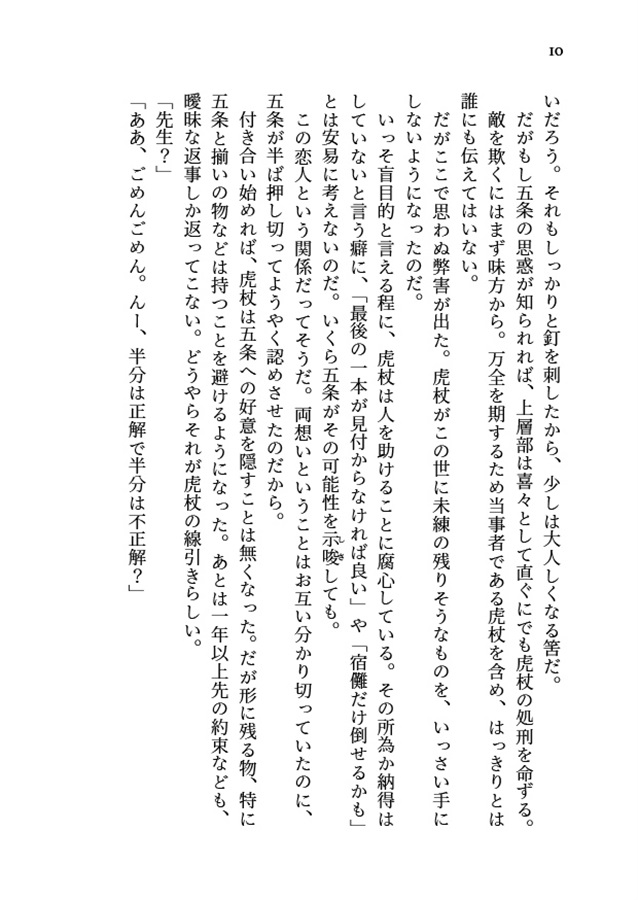 10
いだろう。それもしっかりと釘を刺したから、少しは大人しくなる筈だ。
だがもし五条の思惑が知られれば、上層部は喜々として直ぐにでも虎杖の処刑を命ずる。
敵を欺くにはまず味方から。万全を期するため当事者である虎杖を含め、はっきりとは
誰にも伝えてはいない。
だがここで思わぬ弊害が出た。虎杖がこの世に未練の残りそうなものを、いっさい手に
しないようになったのだ。
いっそ盲目的と言える程に、虎杖は人を助けることに腐心している。その所為か納得は
していないと言う癖に、「最後の一本が見付からなければ良い」や「宿儺だけ倒せるかも」
とは安易に考えないのだ。いくら五条がその可能性を示唆しさしても。
この恋人という関係だってそうだ。両想いということはお互い分かり切っていたのに、
五条が半ば押し切ってようやく認めさせたのだから。
付き合い始めれば、虎杖は五条への好意を隠すことは無くなった。だが形に残る物、特に
五条と揃いの物などは持つことを避けるようになった。あとは一年以上先の約束なども、
曖昧な返事しか返ってこない。どうやらそれが虎杖の線引きらしい。
「先生？」
「ああ、ごめんごめん。んー、半分は正解で半分は不正解？」